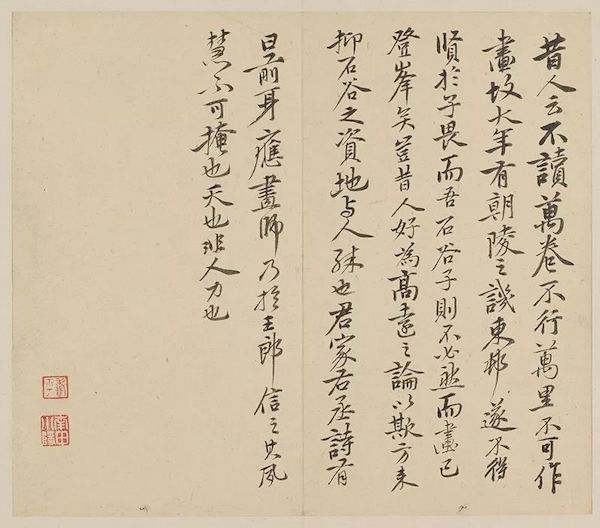 昔人云不讀萬卷不行萬里不可作
畫故大年有朝陵之譏東邨遂不得
賢於子畏而吾石谷子則不必然而畫已
登峯矣豈昔人好為高遠之論以欺方来
抑石谷之資地与人殊也君家右丞詩有
曰前身應畫師乃於王郎信之其夙
慧不可掩也天也非人力也
壽平